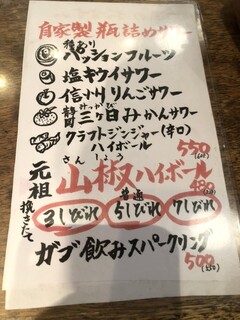 自家製 瓶詰めサワー
種ありパッションフルーツ
塩キウイサワー
信州りんごサワー
静岡三ヶ日みかんサワー
みっかび
クラフトジンジャー(辛口)
ハイボール
550
さんしょう
元祖 山椒ハイボール
480
挽きたて
普通
3しびれ 5しびれ 7しびれ
ガブ飲みスパークリング
500
(550)